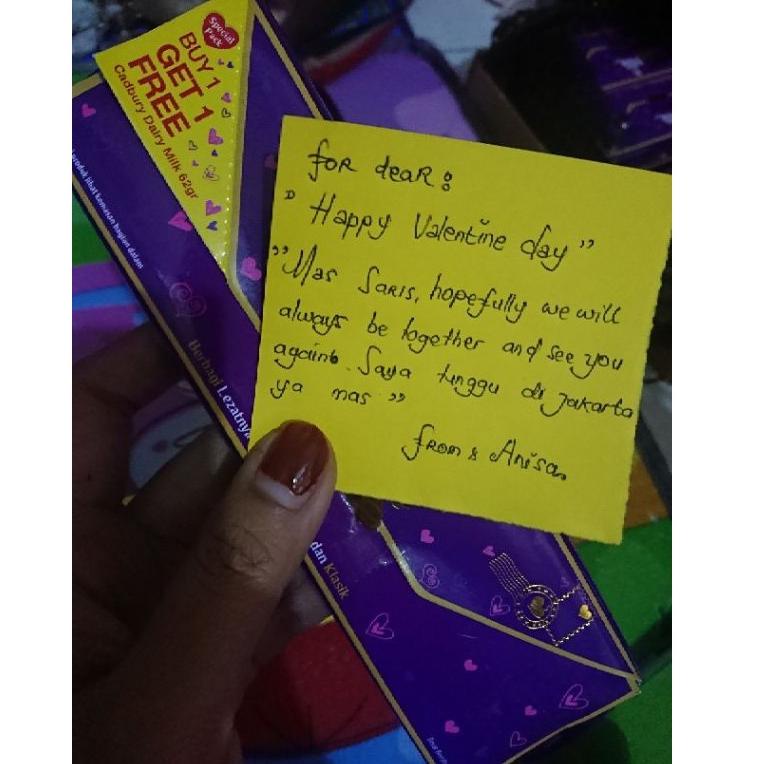 Special
Pack
BUY 1
GET 1
FREE
Cadbury Dairy Milk 62gr
produk lihat kemasan bagian dalam
Berbagi Lezatnya
dan Klasik
for dear :
" Happy Valentine day "
"Mas Saris, hopefully we will
always be together and see you
again. Saya tunggu di Jakarta
ya mas "
from : Anisa.